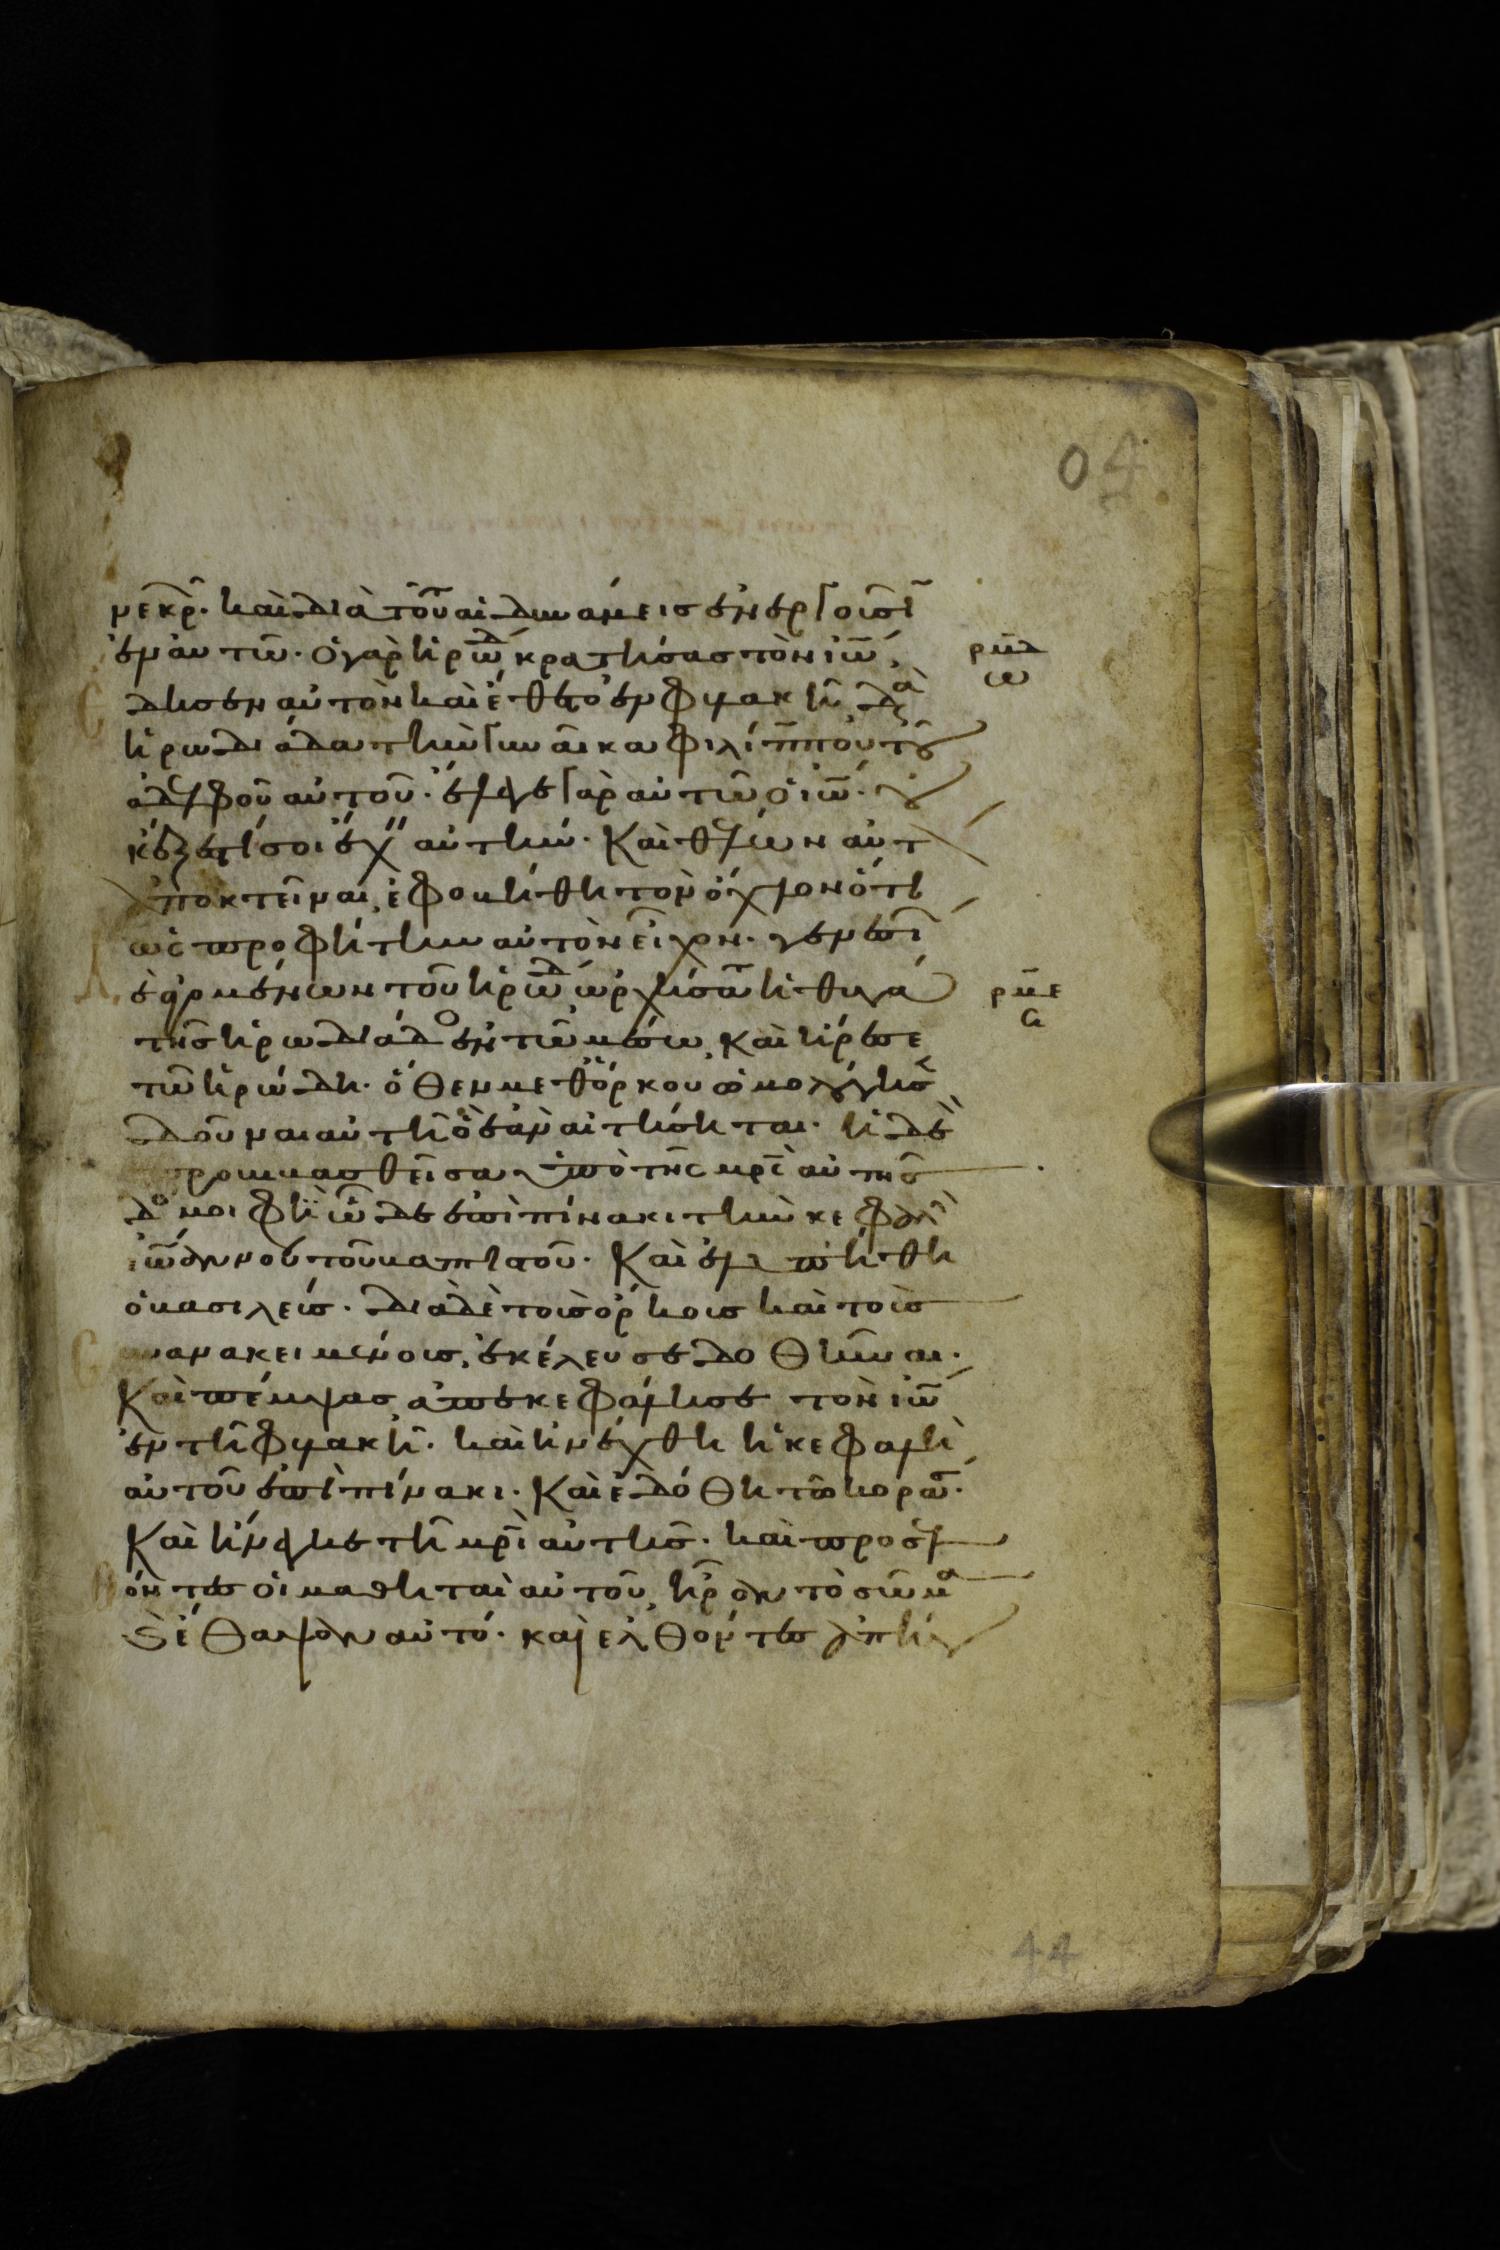 04
νεκρ̂. καὶ διὰ τοῦτο αἱ δυνάμεις ἐνεργοῦσῑ
ἐν αὐτῶ. ὁ γὰρ ἡρώδ κρατήσας τὸν ἰω̅, ρμδ
δησεν αὐτὸν καὶ ἔθετο ἐν φυλακῆ. δϊὰ ω
ἡρωδιάδα τὴν γυναῖκα φιλίππου τοῦ
ἀδελφοῦ αὐτοῦ. ἔλεγε γὰρ αὐτῶ ὁ ἰω̅. οὐ
κ ἔξεστί σοι ἔχειν αὐτήν. Καὶ θέλων αὐτὸν
ἀποκτεῖναι, ἐφοβήθη τὸν ὄχλον ὅτι
ὡς προφήτην αὐτὸν εἶχον. γενεσί
ων ἀγομένων τοῦ ἡρώδ, ὠρχήσατο ἡ θυγά ρμε
της ἡρωδιάδο ἐν τῶ μέσω, καὶ ἤρεσε ϛ
τῶ ἡρώδη. ὅθεν μεθ ὅρκου ὡμολόγησε
δοῦναι αὐτῆ ὃ ἐὰν αἰτήσηται. ἡ δὲ
προβιβασθεῖσα ὑπὸ τῆς μρ̅ὶ αὐτῆς
δο μοι φησὶν ὧδε ἐπὶ πίνακι τὴν κεφαλὴν
ἰωάννου τοῦ βαπτιστοῦ. Καὶ ἐλυπήθη
ὁ βασιλεύς. διὰ δὲ τοὶς ὅρκοις καὶ τοὶς
συνανακειμένοις, ἐκέλευσε δοθῆναι.
Καὶ πέμψας ἀπεκεφάλισε τὸν ἰω̅
ἐν τῆ φυλακῆ. καὶ ἠνέχθη ἡ κεφαλὴ
αὐτοῦ ἐπὶ πίνακι. Καὶ ἐδόθη τῶ κορασ.
Καὶ ἤνεγκε τῆ μρ̅ὶ αὐτῆς. καὶ προσελ
όντες οἱ μαθηταὶ αὐτοῦ, ἦραν τὸ σῶμα
καὶ ἔθαψαν αὐτό. καὶ ἐλθόντες ἀπήγ
44